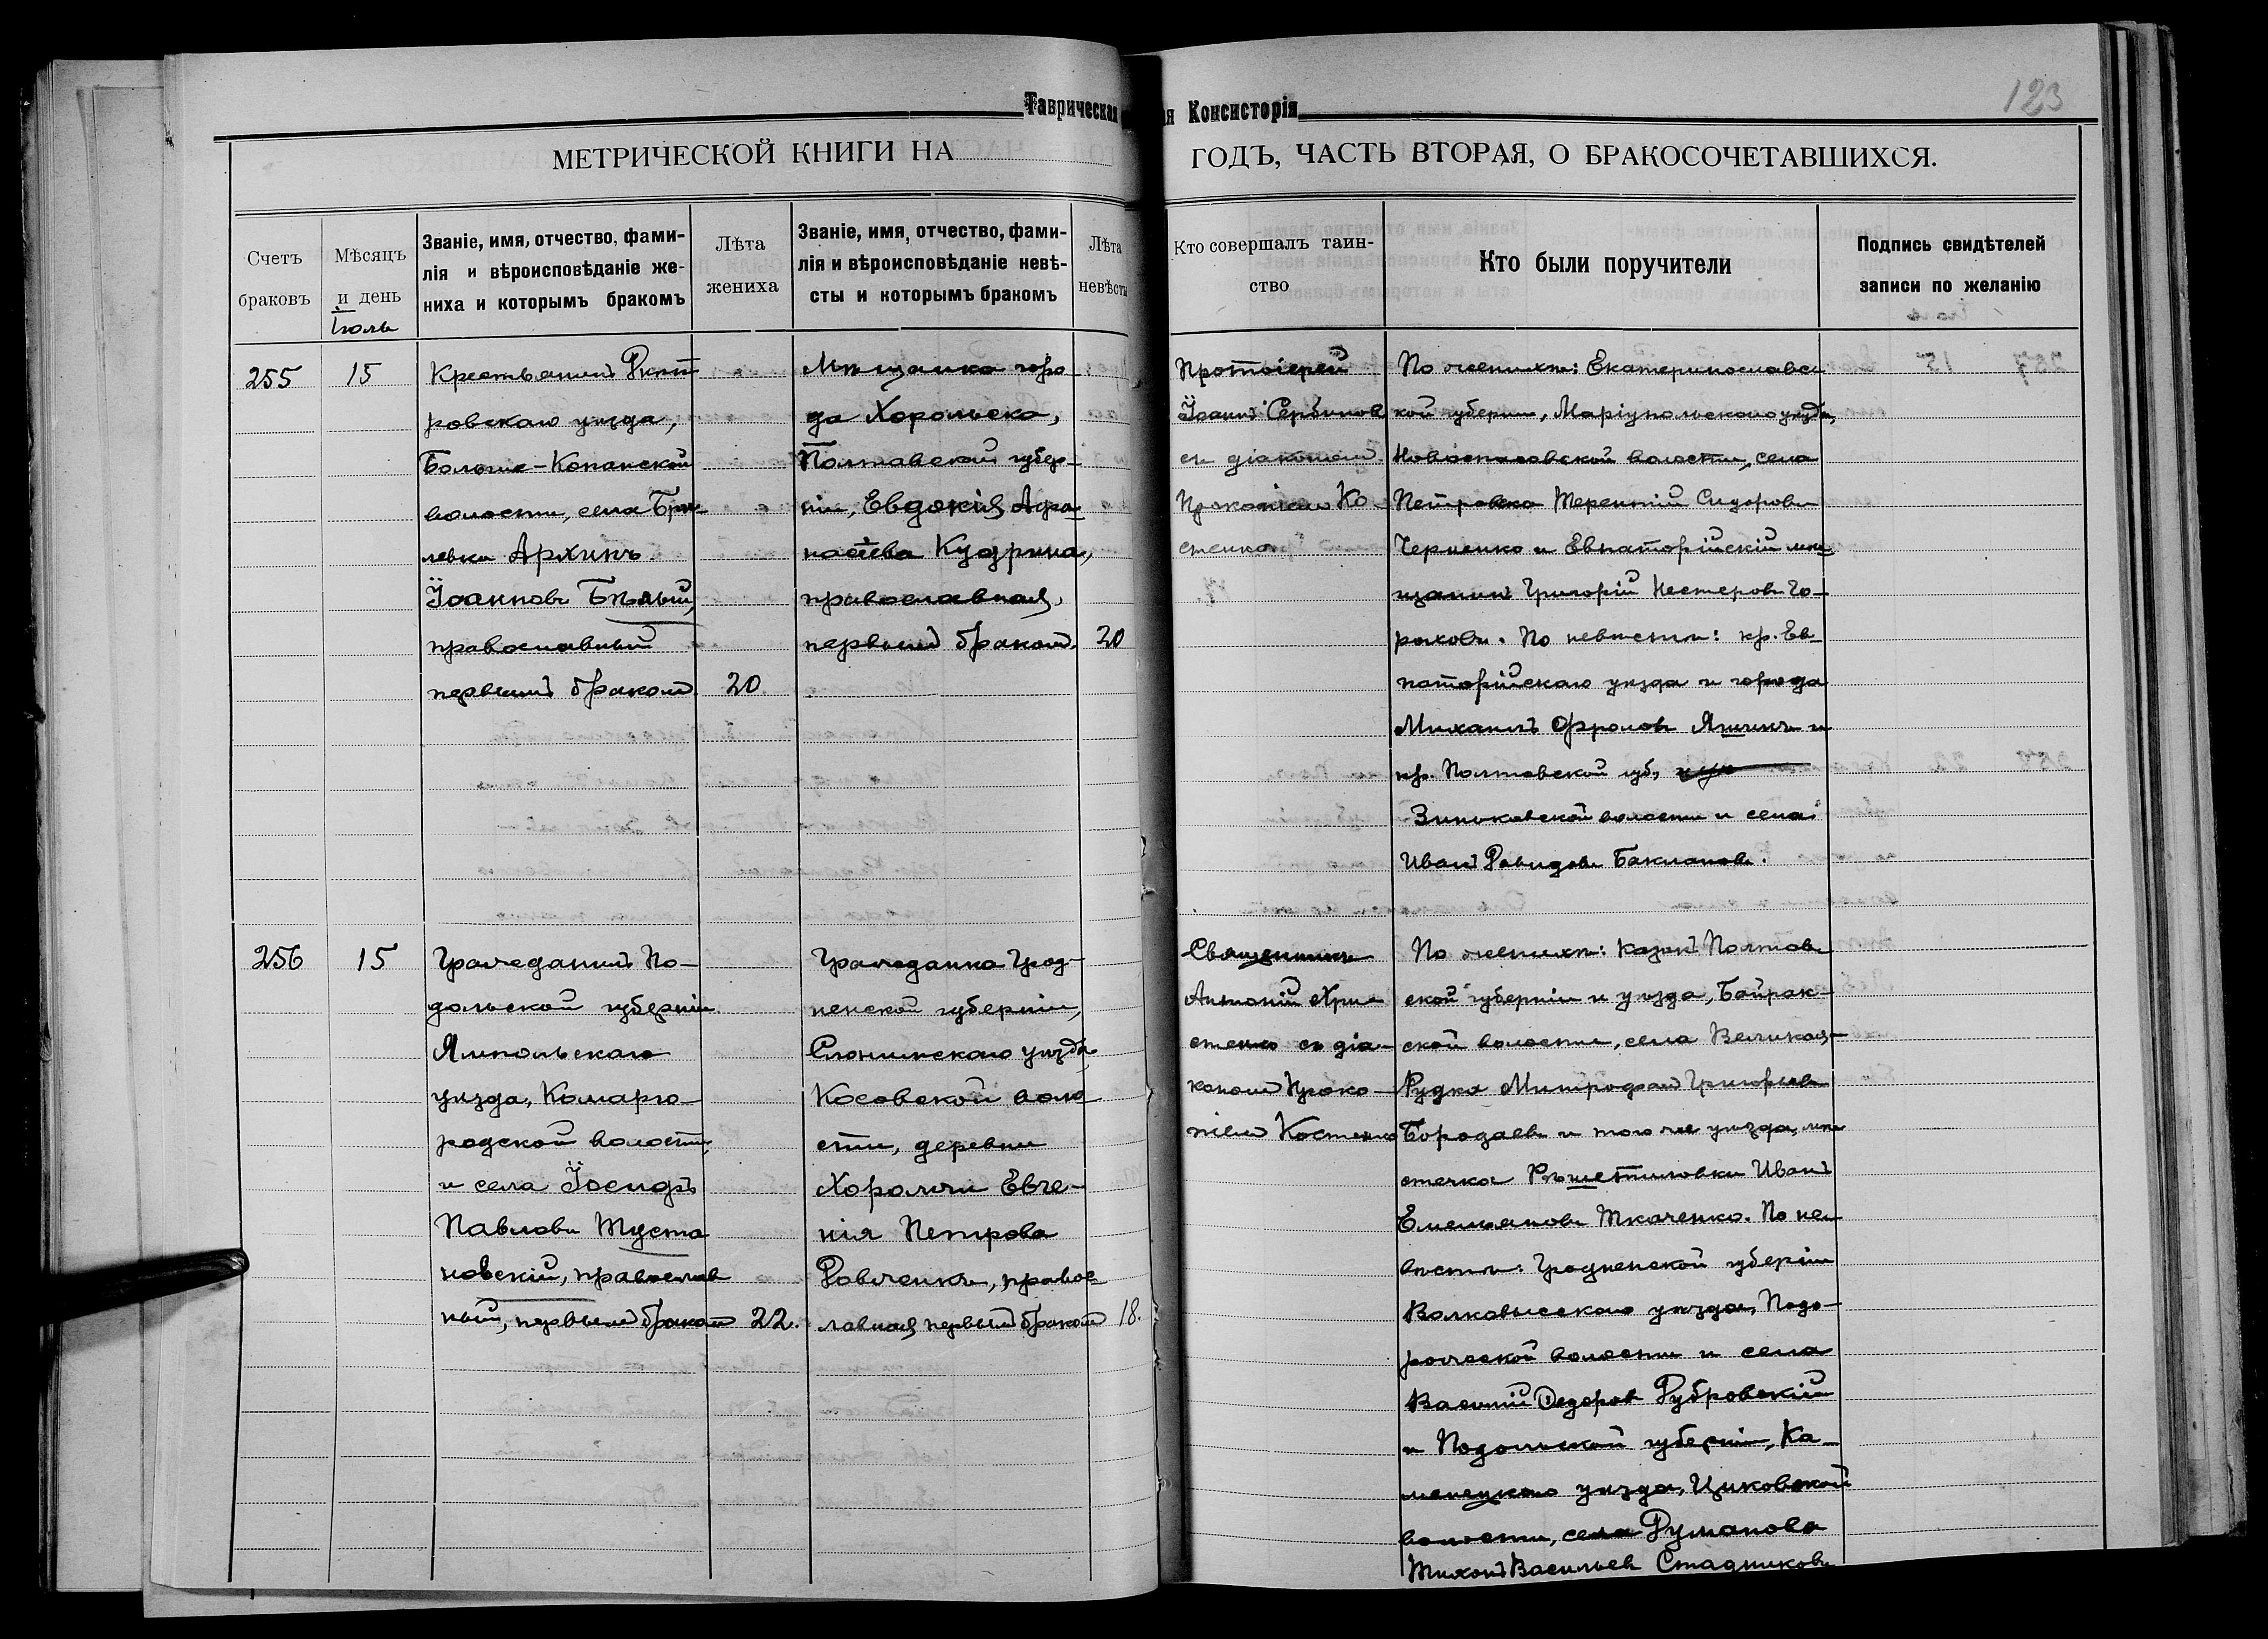 123
Таврическая
я Консисторія
МЕТРИЧЕСКОЙ КНИГИ НА
ГОДЪ, ЧАСТЬ ВТОРАЯ, О БРАКОСОЧЕТАВШИХСЯ.
Счетъ
браковъ
Мѣсяцъ
и день
Іюль
Званіе, имя, отчество, фами-
лія и вѣроисповѣданіе же-
ниха и которымъ бракомъ
Лѣта
жениха
Званіе, имя, отчество, фами-
лія и вѣроисповѣданіе невѣ-
сты и которымъ бракомъ
Лѣта
невѣсты
Кто совершалъ таин-
ство
Кто были поручители
Подпись свидѣтелей
записи по желанію
255
15
Крестьянинъ Днѣп
ровскаго уѣзда,
Больше-Копанской
волости, села
левки Архипъ
Іоанновъ Бѣлый,
православный
первымъ бракомъ
20
Мѣщанка горо
да Хорольска,
Полтавской губер-
ніи, Евдокія Афа-
насіева Кудрина,
православная,
первымъ бракомъ.
20
Протоіерей
Іоаннъ Сербинов
съ діакономъ
Прокопіемъ Ко
стенко
По женихѣ: Екатеринославс
кой губерніи, Маріупольскаго уѣзда,
Новоспасовской волости, села
Петровка Терентій Сидоровъ
Черненко и Евпаторійскій мѣ-
щанинъ Григорій Нестеровъ Го-
роховъ. По невѣстѣ: кр. Ев-
паторійскаго уѣзда и города
Михаилъ Фроловъ Яшинъ и
кр. Полтавской губ,
Зиньковской волости и села
Иванъ Давидовъ Баклановъ.
256
15
Гражданинъ По-
дольской губерніи
Ямпольскаго
уѣзда, Комарго-
родской волости,
и села Іосифъ
Павловъ Туста
новскій, православ
ный, первымъ бракомъ
22.
Гражданка Грод-
ненской губерніи,
Слонимскаго уѣзда,
Косовской воло
сти, деревни
Хорошчи Евге-
нія Петрова
Ровченкъ, правос-
лавная первымъ бракомъ
18.
Священникъ
Антоній Хри
стенко съ діа-
кономъ Проко-
піемъ Костенко
По женихѣ: казакъ Полтав
ской губерніи и уѣзда, Байрак-
ской волости, села Великая-
Рудка Митрофанъ Григорьевъ
Бородаевъ и того же уѣзда, мѣ
стечка Рѣшетиловки Иванъ
Емельяновъ Ткаченко. По не
вѣстѣ: Гродненской губерніи
Волковысскаго уѣзда, Подо-
росской волости и села
Василій Ѳедоров Дубровскій
и Подольской губерніи, Ка-
менецкаго уѣзда, Циковской
волости, села Думанова
Тихонъ Васильев Стадниковъ